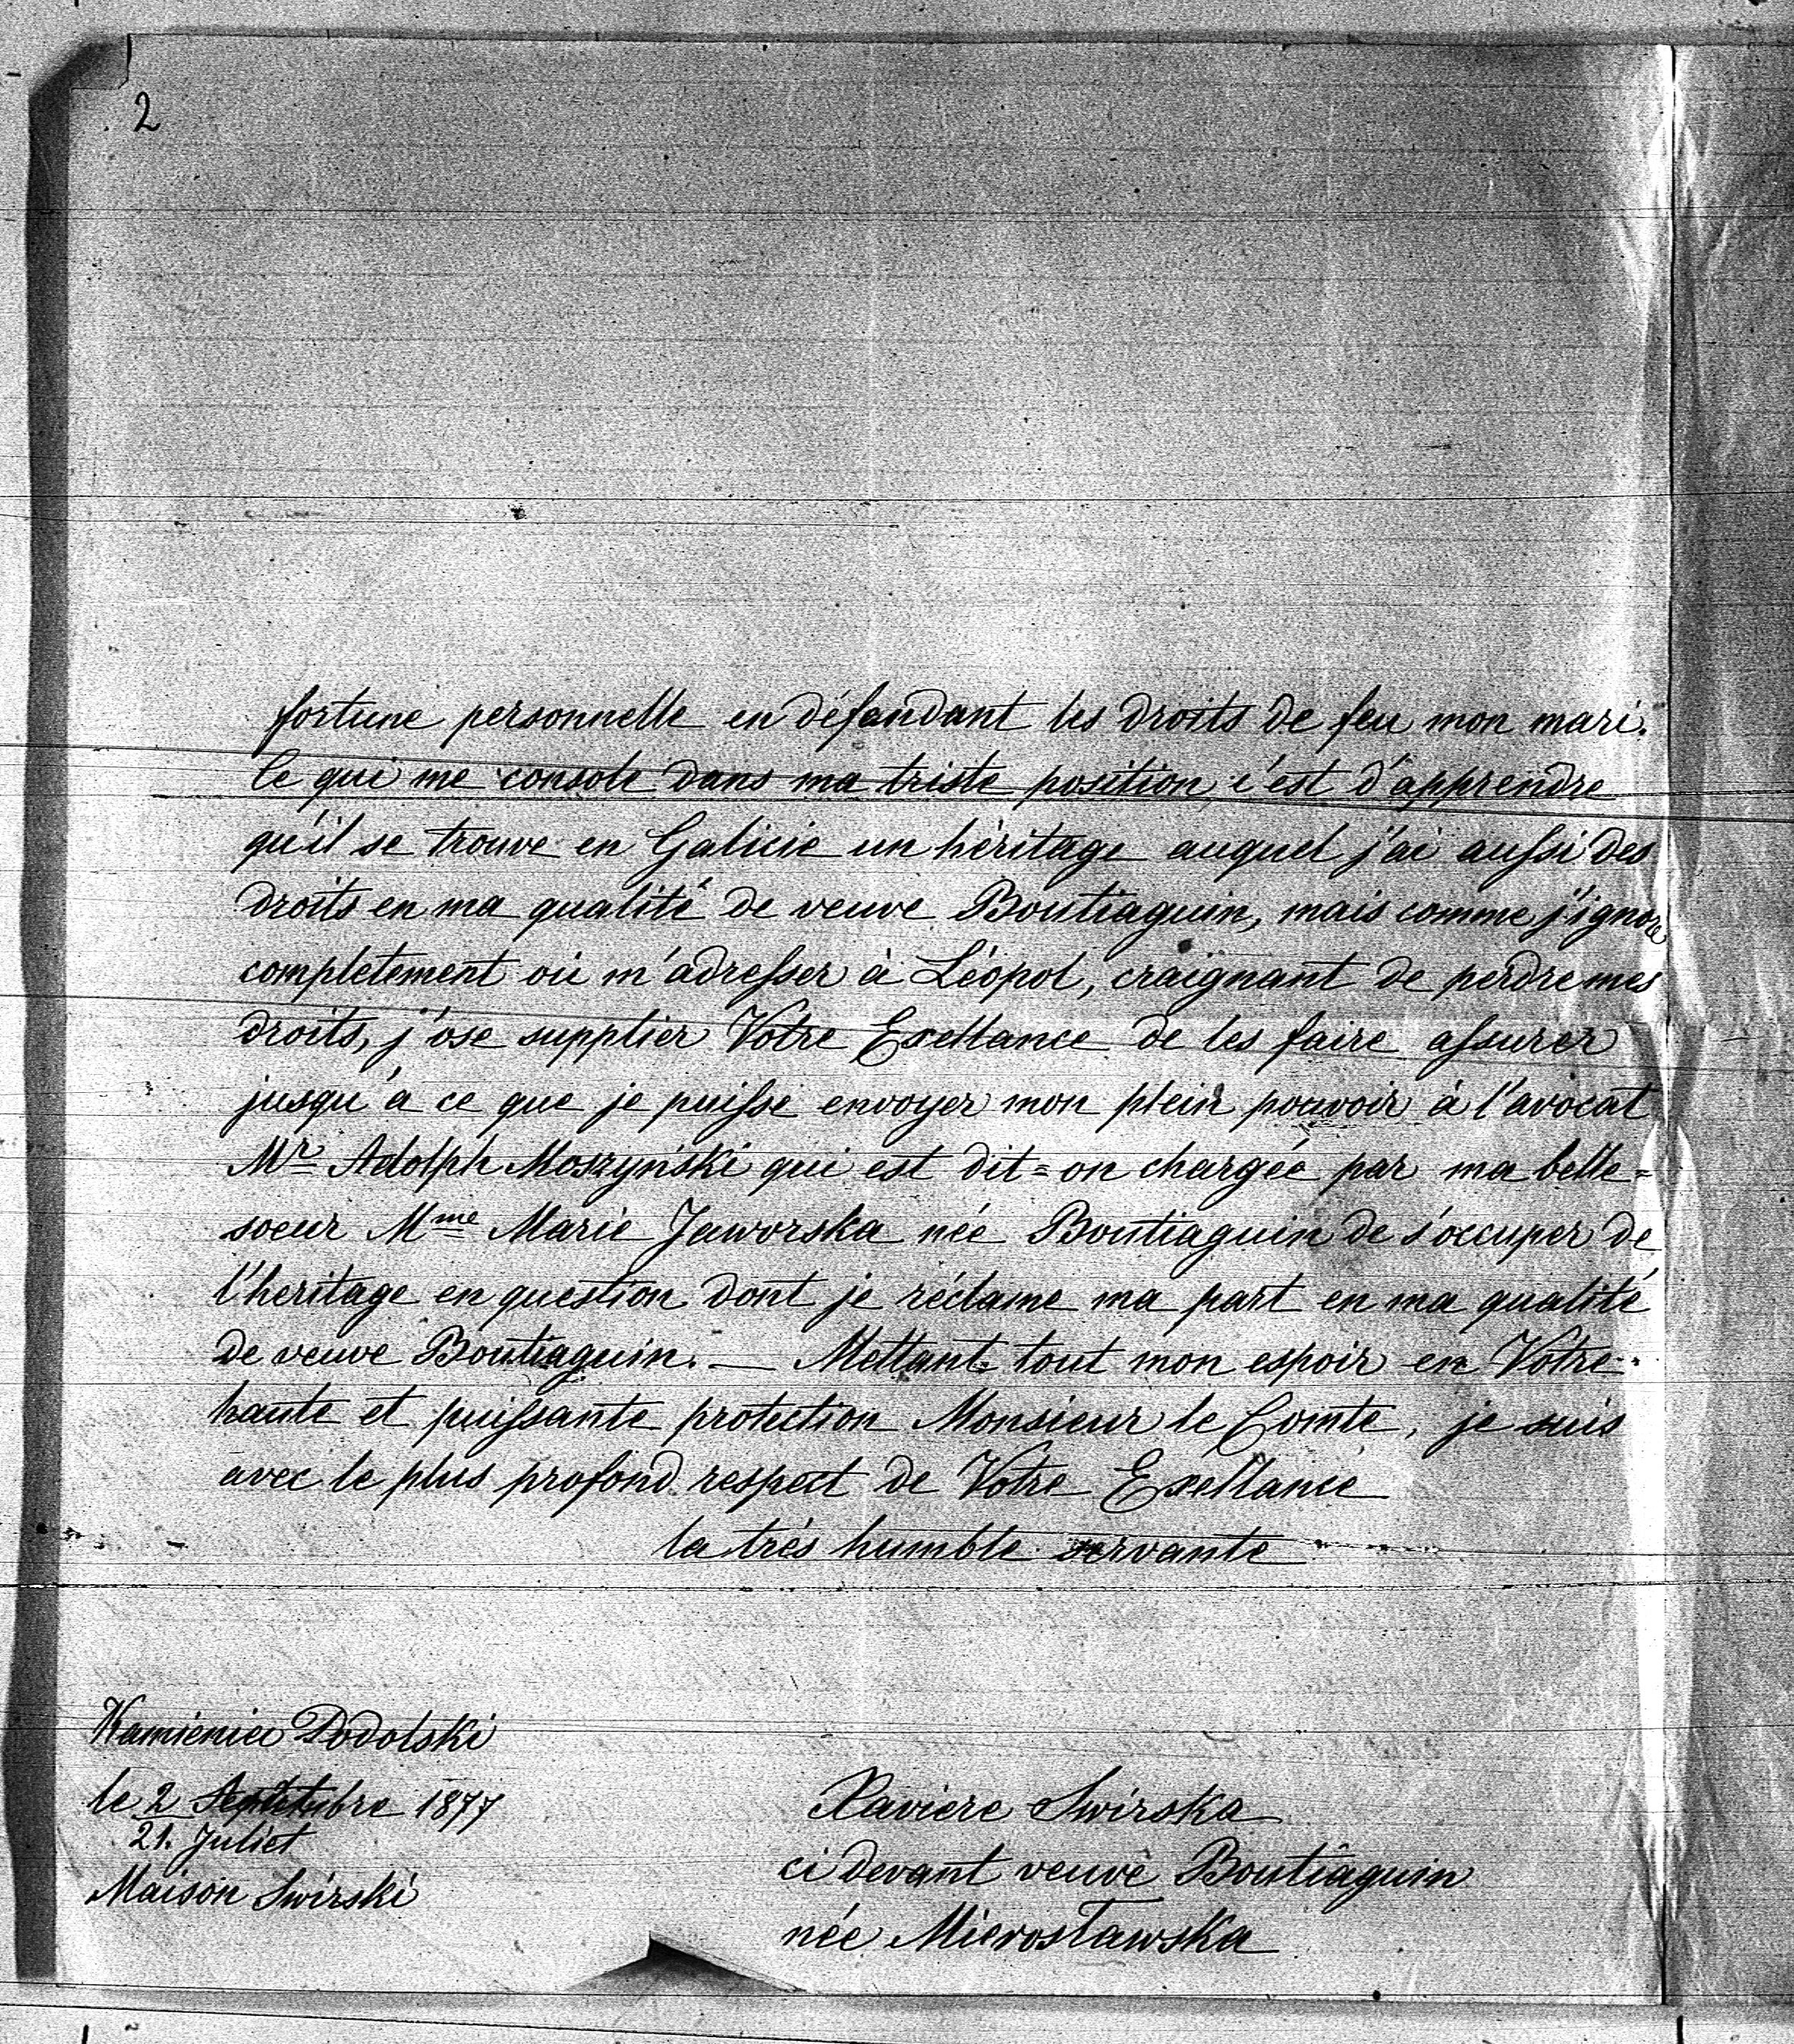 2
fortune personnelle en défendant les droits de feu mon mari.
Ce qui me console dans ma triste position, c'est d'apprendre
qu'il se trouve en Galicie un héritage auquel j'ai aussi des
droits en ma qualité de veuve Boutiaguin, mais comme j'ignore
completement où m'adresser à Léopol, craignant de perdre mes
droits, j'ose supplier Votre Exellance de les faire assurer
jusqu'à ce que je puisse envoyer mon plein pouvoir à l'avocat
Mr Adolph Moszyński qui est dit=on chargée par ma belle=
soeur Mme Marie Jaworska née Boutiaguin de s'occuper de
l'heritage en question dont je réclame ma part en ma qualité
de veuve Boutiaguin. — Mettant tout mon espoir en Votre
haute et puissante protection Monsieur le Comte, je suis
avec le plus profond respect de Votre Exellance
la très humble servante
Kamieniec Podolski
le 2 1877
21. Juliet
Maison Swirski
Xaviere Swirska
ci devant veuve Boutiaguin
née Mierosławska